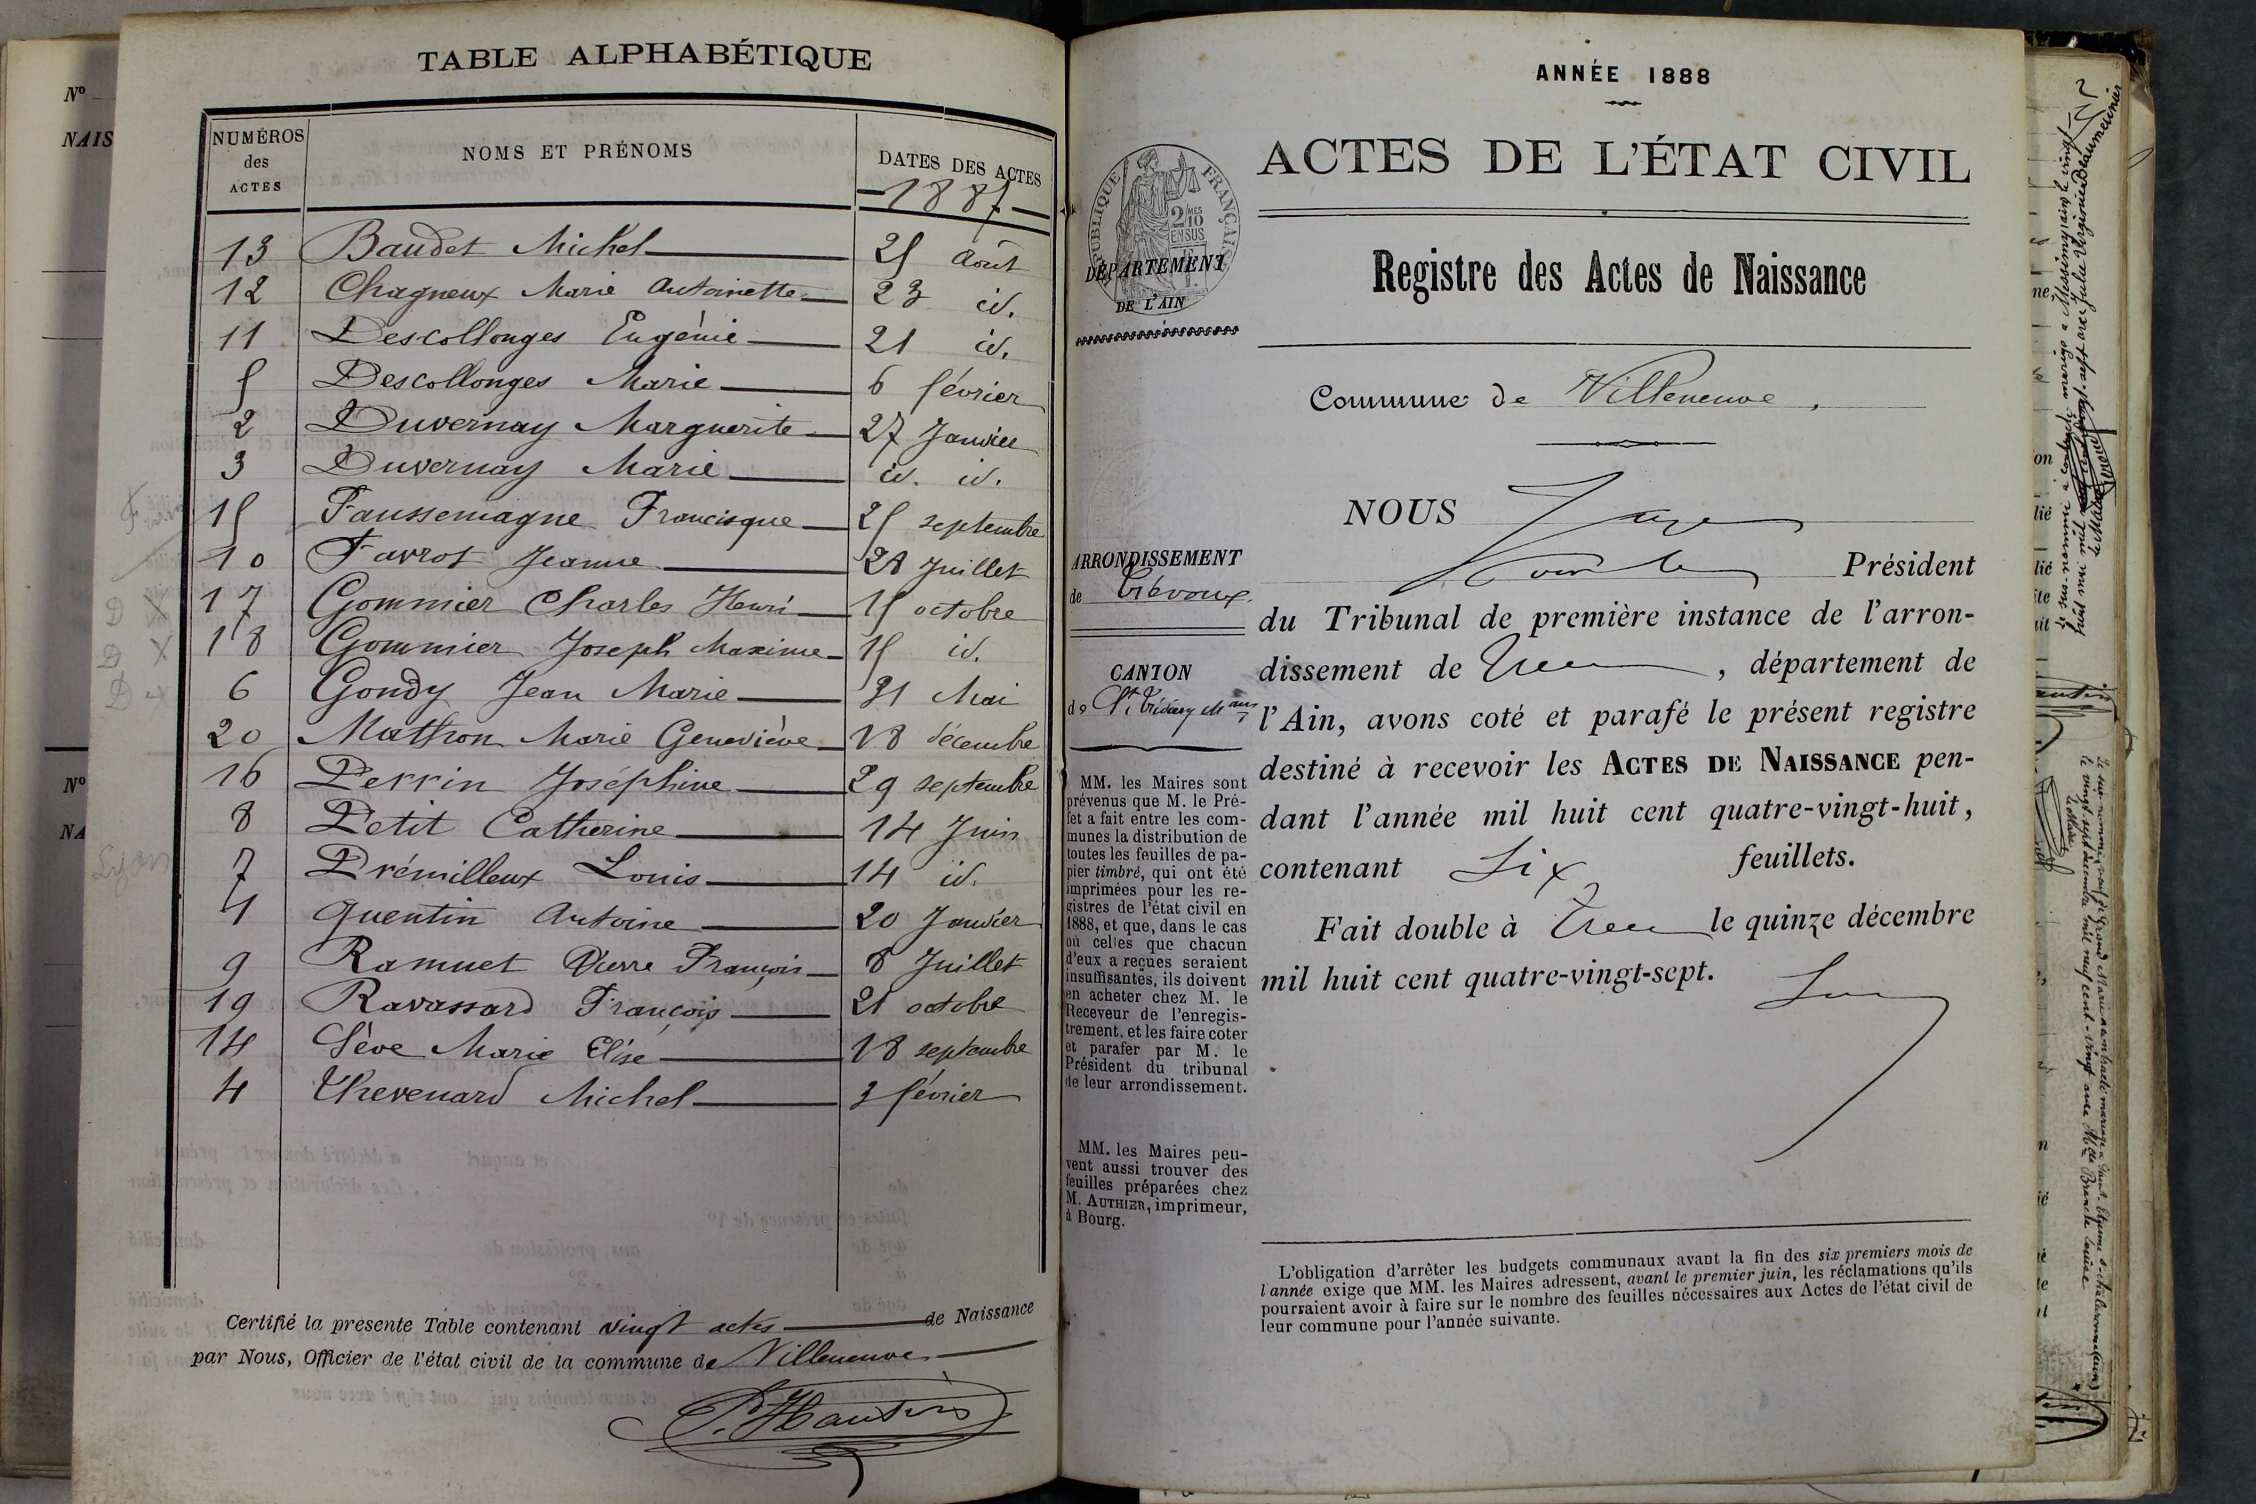 TABLE ALPHABÉTIQUE
NUMÉROS des ACTES
NOMS ET PRÉNOMS
DATES DES ACTES
1887
13 Baudet Michel 25 août
12 Chagneux Marie Antoinette 23 id.
11 Descollonges Eugénie 21 id.
5 Descollonges Marie 6 février
2 Duvernay Marguerite 27 Janvier
3 Duvernay Marie id. id.
15 Faussemagne Francisque 25 septembre
10 Favrot Jeanne 28 Juillet
17 Gommier Charles Henri 15 octobre
18 Gommier Joseph Maxime 15 id.
6 Gondy Jean Marie 31 Mai
20 Mathon Marie Geneviève 18 décembre
16 Perrin Joséphine 29 septembre
8 Petit Catherine 14 Juin
7 Prémilleux Louis 14 id.
1 Quentin Antoine 20 Janvier
9 Ramuet Pierre François 8 Juillet
19 Ravassard François 21 octobre
14 Sève Marie Elise 18 septembre
4 Thevenard Michel 3 février
Lyon
Certifié la présente Table contenant vingt actes de Naissance
par Nous, Officier de l'état civil de la commune de Villeneuve
Nº
NAIS
Nº
NA
ANNÉE 1888
ACTES DE L'ÉTAT CIVIL
Registre des Actes de Naissance
Commune de Villeneuve.
RÉPUBLIQUE FRANÇAISE
DÉPARTEMENT
DE L'AIN
ARRONDISSEMENT
de Trévoux
CANTON
de St Trivier
MM. les Maires sont
prévenus que M. le Pré-
fet a fait entre les com-
munes la distribution de
toutes les feuilles de pa-
pier timbré, qui ont été
imprimées pour les re-
gistres de l'état civil en
1888, et que, dans le cas
où celles que chacun
d'eux a reçues seraient
insuffisantes, ils doivent
en acheter chez M. le
Receveur de l'enregis-
trement, et les faire coter
et parafer par M. le
Président du tribunal
de leur arrondissement.
MM. les Maires peu-
vent aussi trouver des
feuilles préparées chez
M. AUTHIER, imprimeur,
à Bourg.
NOUS
Président
du Tribunal de première instance de l'arron-
dissement de , département de
l'Ain, avons coté et parafé le présent registre
destiné à recevoir les ACTES DE NAISSANCE pen-
dant l'année mil huit cent quatre-vingt-huit,
contenant Six feuillets.
Fait double à le quinze décembre
mil huit cent quatre-vingt-sept.
L'obligation d'arrêter les budgets communaux avant la fin des six premiers mois de
l'année exige que MM. les Maires adressent, avant le premier juin, les réclamations qu'ils
pourraient avoir à faire sur le nombre des feuilles nécessaires aux Actes de l'état civil de
leur commune pour l'année suivante.